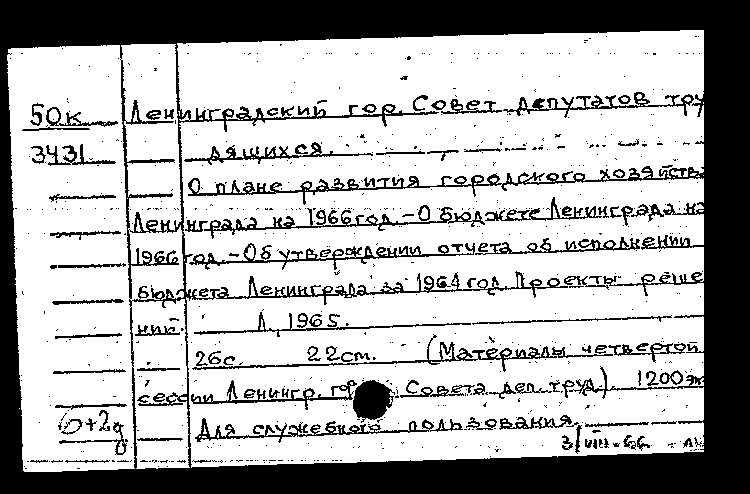 50к Ленинградский гор. Совет депутатов тру
3431 дящихся.
О плане развития городского хозяйства
Ленинграда на 1966 год. - О бюджете Ленинграда на
1966 год. - Об утверждении отчета об исполнении
бюджета Ленинграда за 1964 год. Проекты реше
ний. Л., 1965.
26с. 22см. (Материалы четвертой
сессии Ленингр. гор. Совета деп. труд.). 1200 эк
6+2д Для служебного пользования.
3/VIII-66